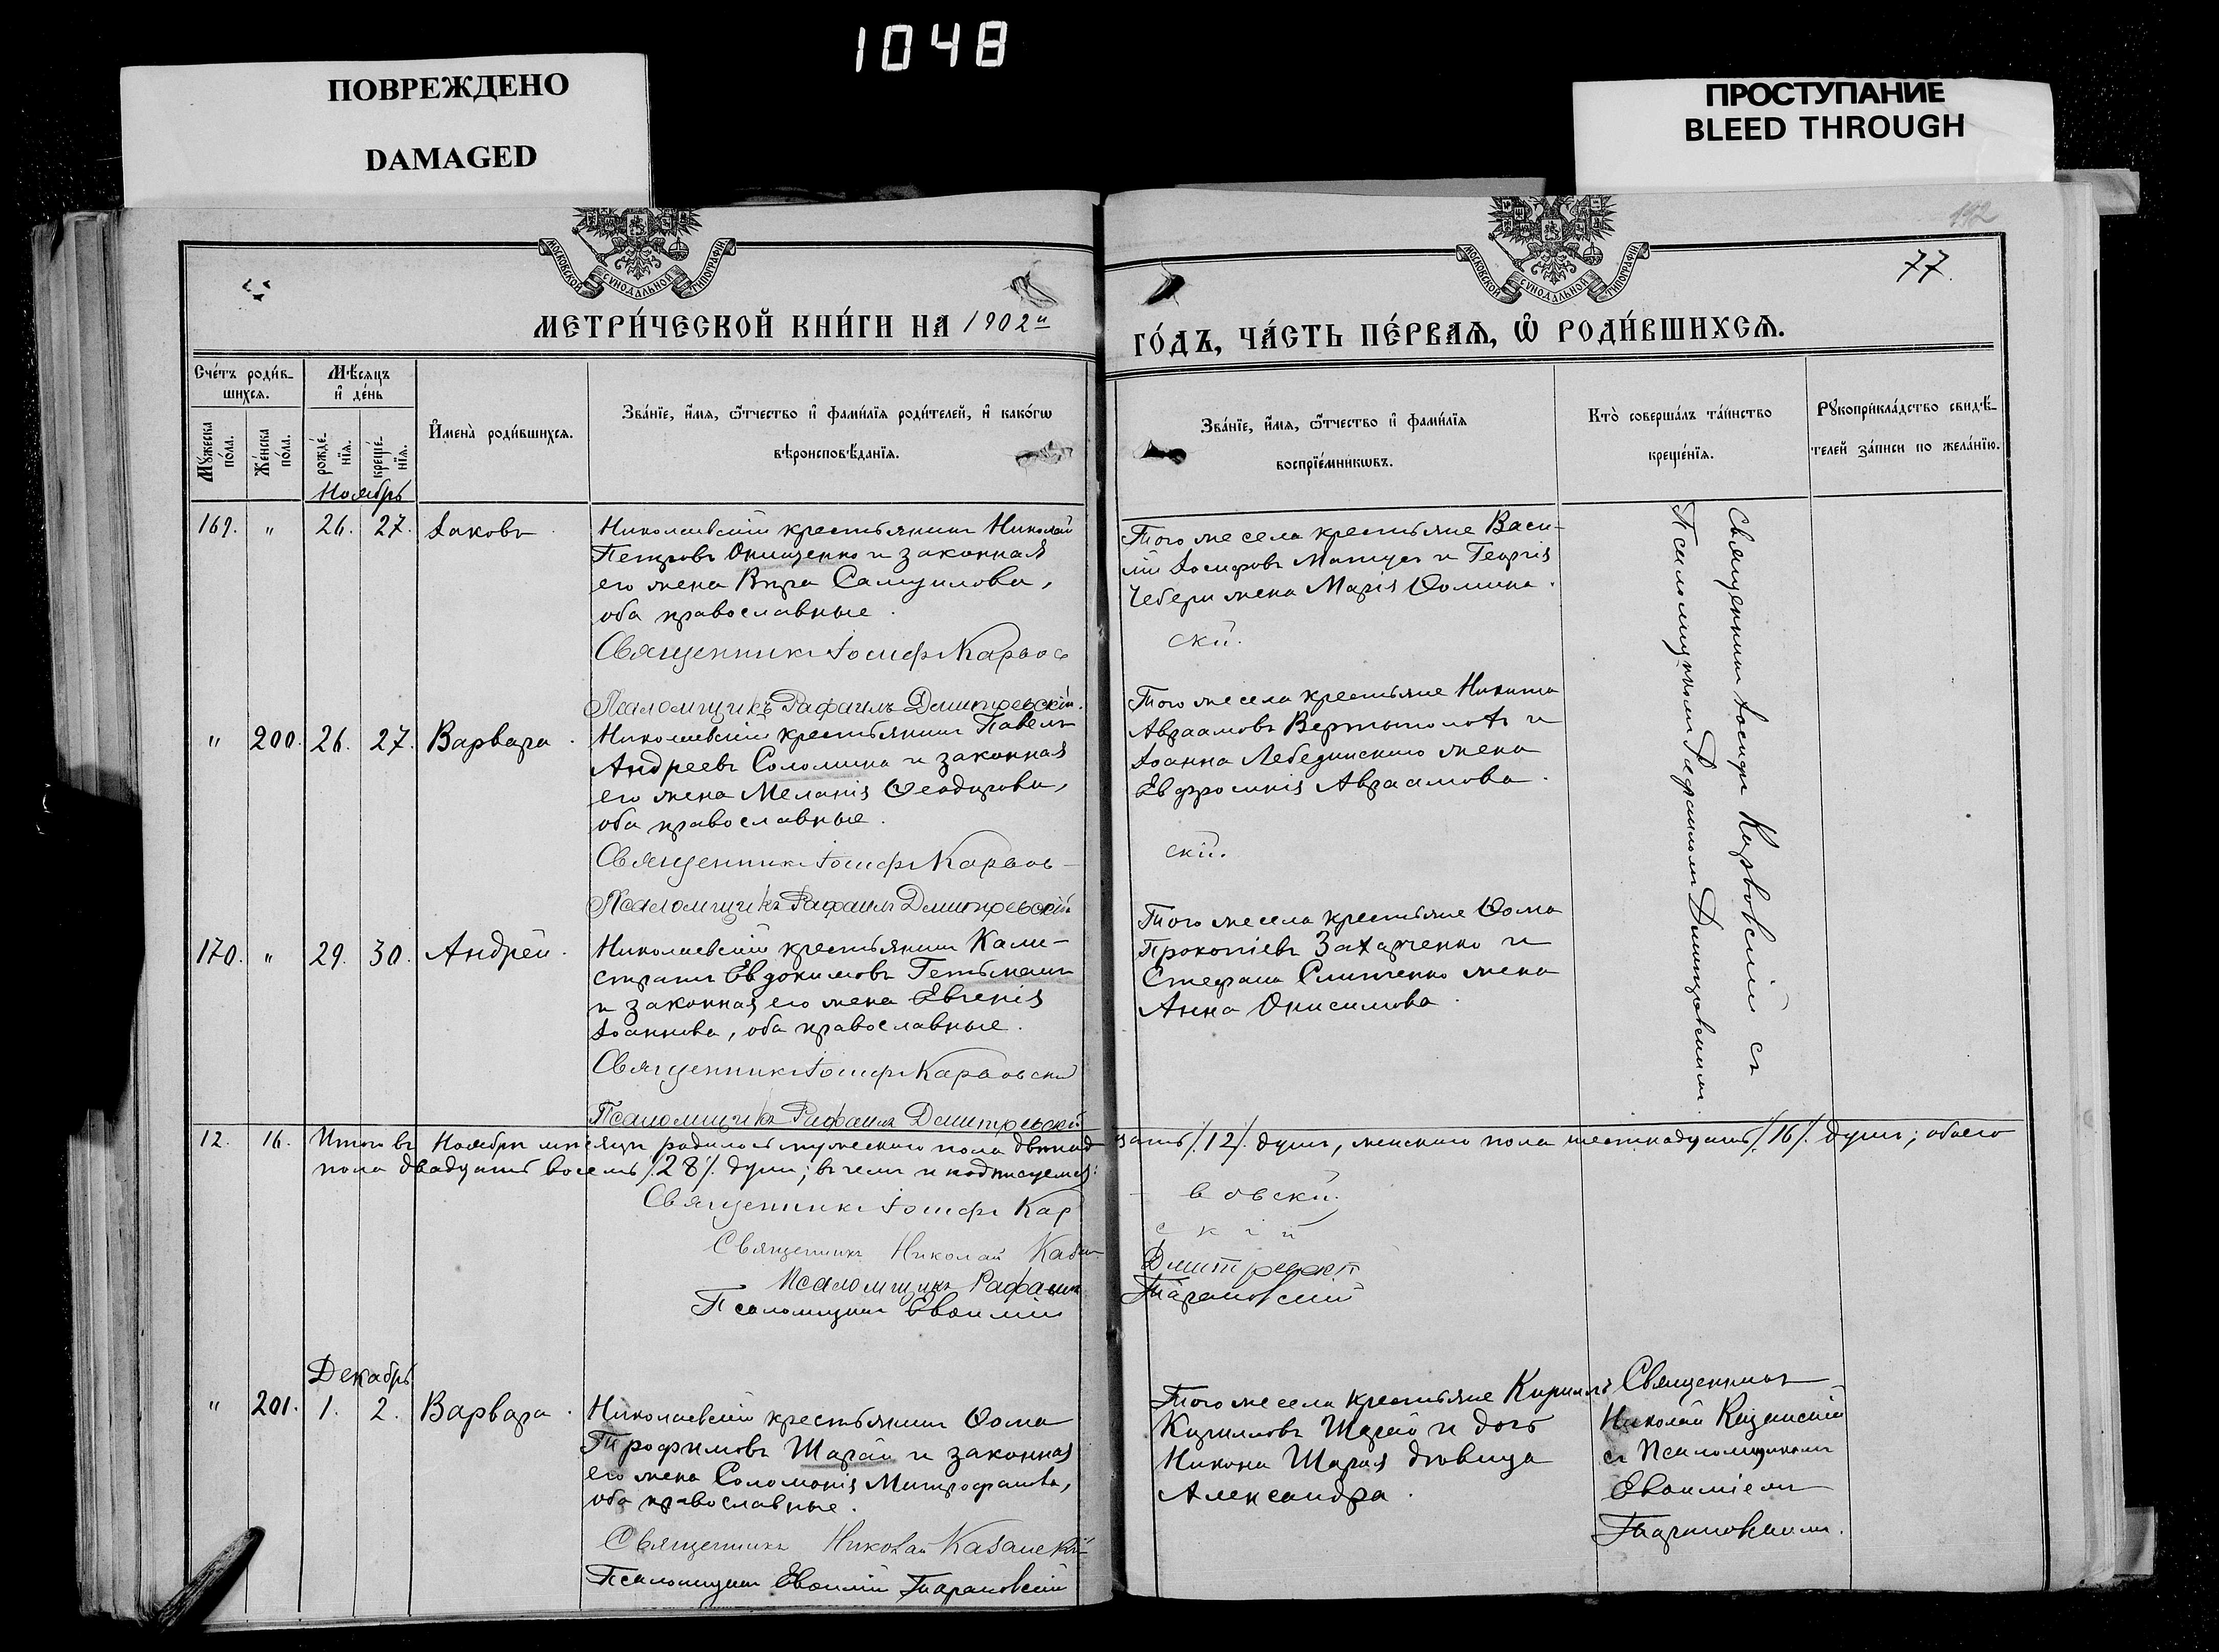 1048
ПОВРЕЖДЕНО
DAMAGED
ПРОСТУПАНИЕ
BLEED THROUGH
192
77.
МОСКОВСКОЙ СѴНОДАЛЬНОЙ ТИПОГРАФІИ
МОСКОВСКОЙ СѴНОДАЛЬНОЙ ТИПОГРАФІИ
МЕТРИ́ЧЕСКОЙ КНИ́ГИ НА 1902й
ГО́ДЪ, ЧА́СТЬ ПЕ́РВАѦ, Ѡ҆ РОДИ́ВШИХСѦ.
Сче́тъ роди́в-
шихсѧ.
Мѣ́сѧцъ
и҆ де́нь
Мꙋ́жеска
по́ла.
Же́нска
по́ла.
рожде́-
нїѧ.
креще́-
нїѧ.
И҆мена̀ роди́вшихсѧ.
Зва́нїе, и҆́мѧ, ѻ҆́тчество и҆ фами́лїѧ роди́телей, и҆ како́гѡ
вѣроисповѣ́данїѧ.
Зва́нїе, и҆́мѧ, ѻ҆́тчество и҆ фами́лїѧ
воспрїе́мникѡвъ.
Кто̀ соверша́лъ та́инство
креще́нїѧ.
Рꙋкоприкла́дство свидѣ́-
телей за́писи по жела́нїю.
Ноябрь
169. " 26. 27. Іаковъ
Николаевскій крестьянинъ Николай
Петровъ Онищенко и законная
его жена Вѣра Самуилова,
оба православные.
Священникъ Іосифъ Карвов
Псаломщикъ Рафаилъ Дмитревскій.
Того же села крестьяне Васи-
лій Іосифовъ Мамцег и Георгія
Чебери жена Марія Ѳомина.
скій.
Священникъ Іосифъ Карвовскій съ
Псаломщикомъ Рафаиломъ Дмитровскимъ.
" 200. 26. 27. Варвара.
Николаевскій крестьянинъ Павелъ
Андреевъ Соломина и законная
его жена Меланія Ѳеодорова,
оба православные.
Священникъ Іосифъ Карвов-
Псаломщикъ Рафаилъ Дмитревскій
Того же села крестьяне Никита
Авраамовъ Вертыполохъ и
Іоанна Лебединскаго жена
Евфросинія Авраамова.
скій.
170. " 29. 30. Андрей.
Николаевскій крестьянинъ Кали-
стратъ Евдокимовъ Гетьманъ
и законная его жена Евгенія
Іоаннова, оба православные.
Священникъ Іосифъ Карвовскій
Псаломщикъ Рафаилъ Дмитревскій
Того же села крестьяне Ѳома
Прокопіевъ Захарченко и
Стефана Слипченко жена
Анна Онисимова.
12. 16. Итого въ Ноябрѣ мѣсяцѣ родилось мужескаго пола двѣнад цать /12/ душъ, женскаго пола шестнадцать /16/ душъ; обоего
пола двадцать восемь /28/ душъ; въ чемъ и подписуемся:
Священникъ Іосифъ Кар вовскій.
Священникъ Николай Казан скій
Псаломщикъ Рафаилъ Дмитревскій
Псаломщикъ Евѳимій Тарановскій
Декабрь
" 201. 1. 2. Варвара.
Николаевскій крестьянинъ Ѳома
Трофимовъ Шарай и законная
его жена Соломонія Митрофанова,
оба православные.
Священникъ Николай Казанскій
Псаломщикъ Евѳимій Тарановскій
Того же села крестьяне Кириллъ
Кирилловъ Шарай и дочь
Никона Шарая дѣвица
Александра.
Священникъ
Николай Казанскій
съ Псаломщикомъ
Евѳиміемъ
Тарановскимъ.